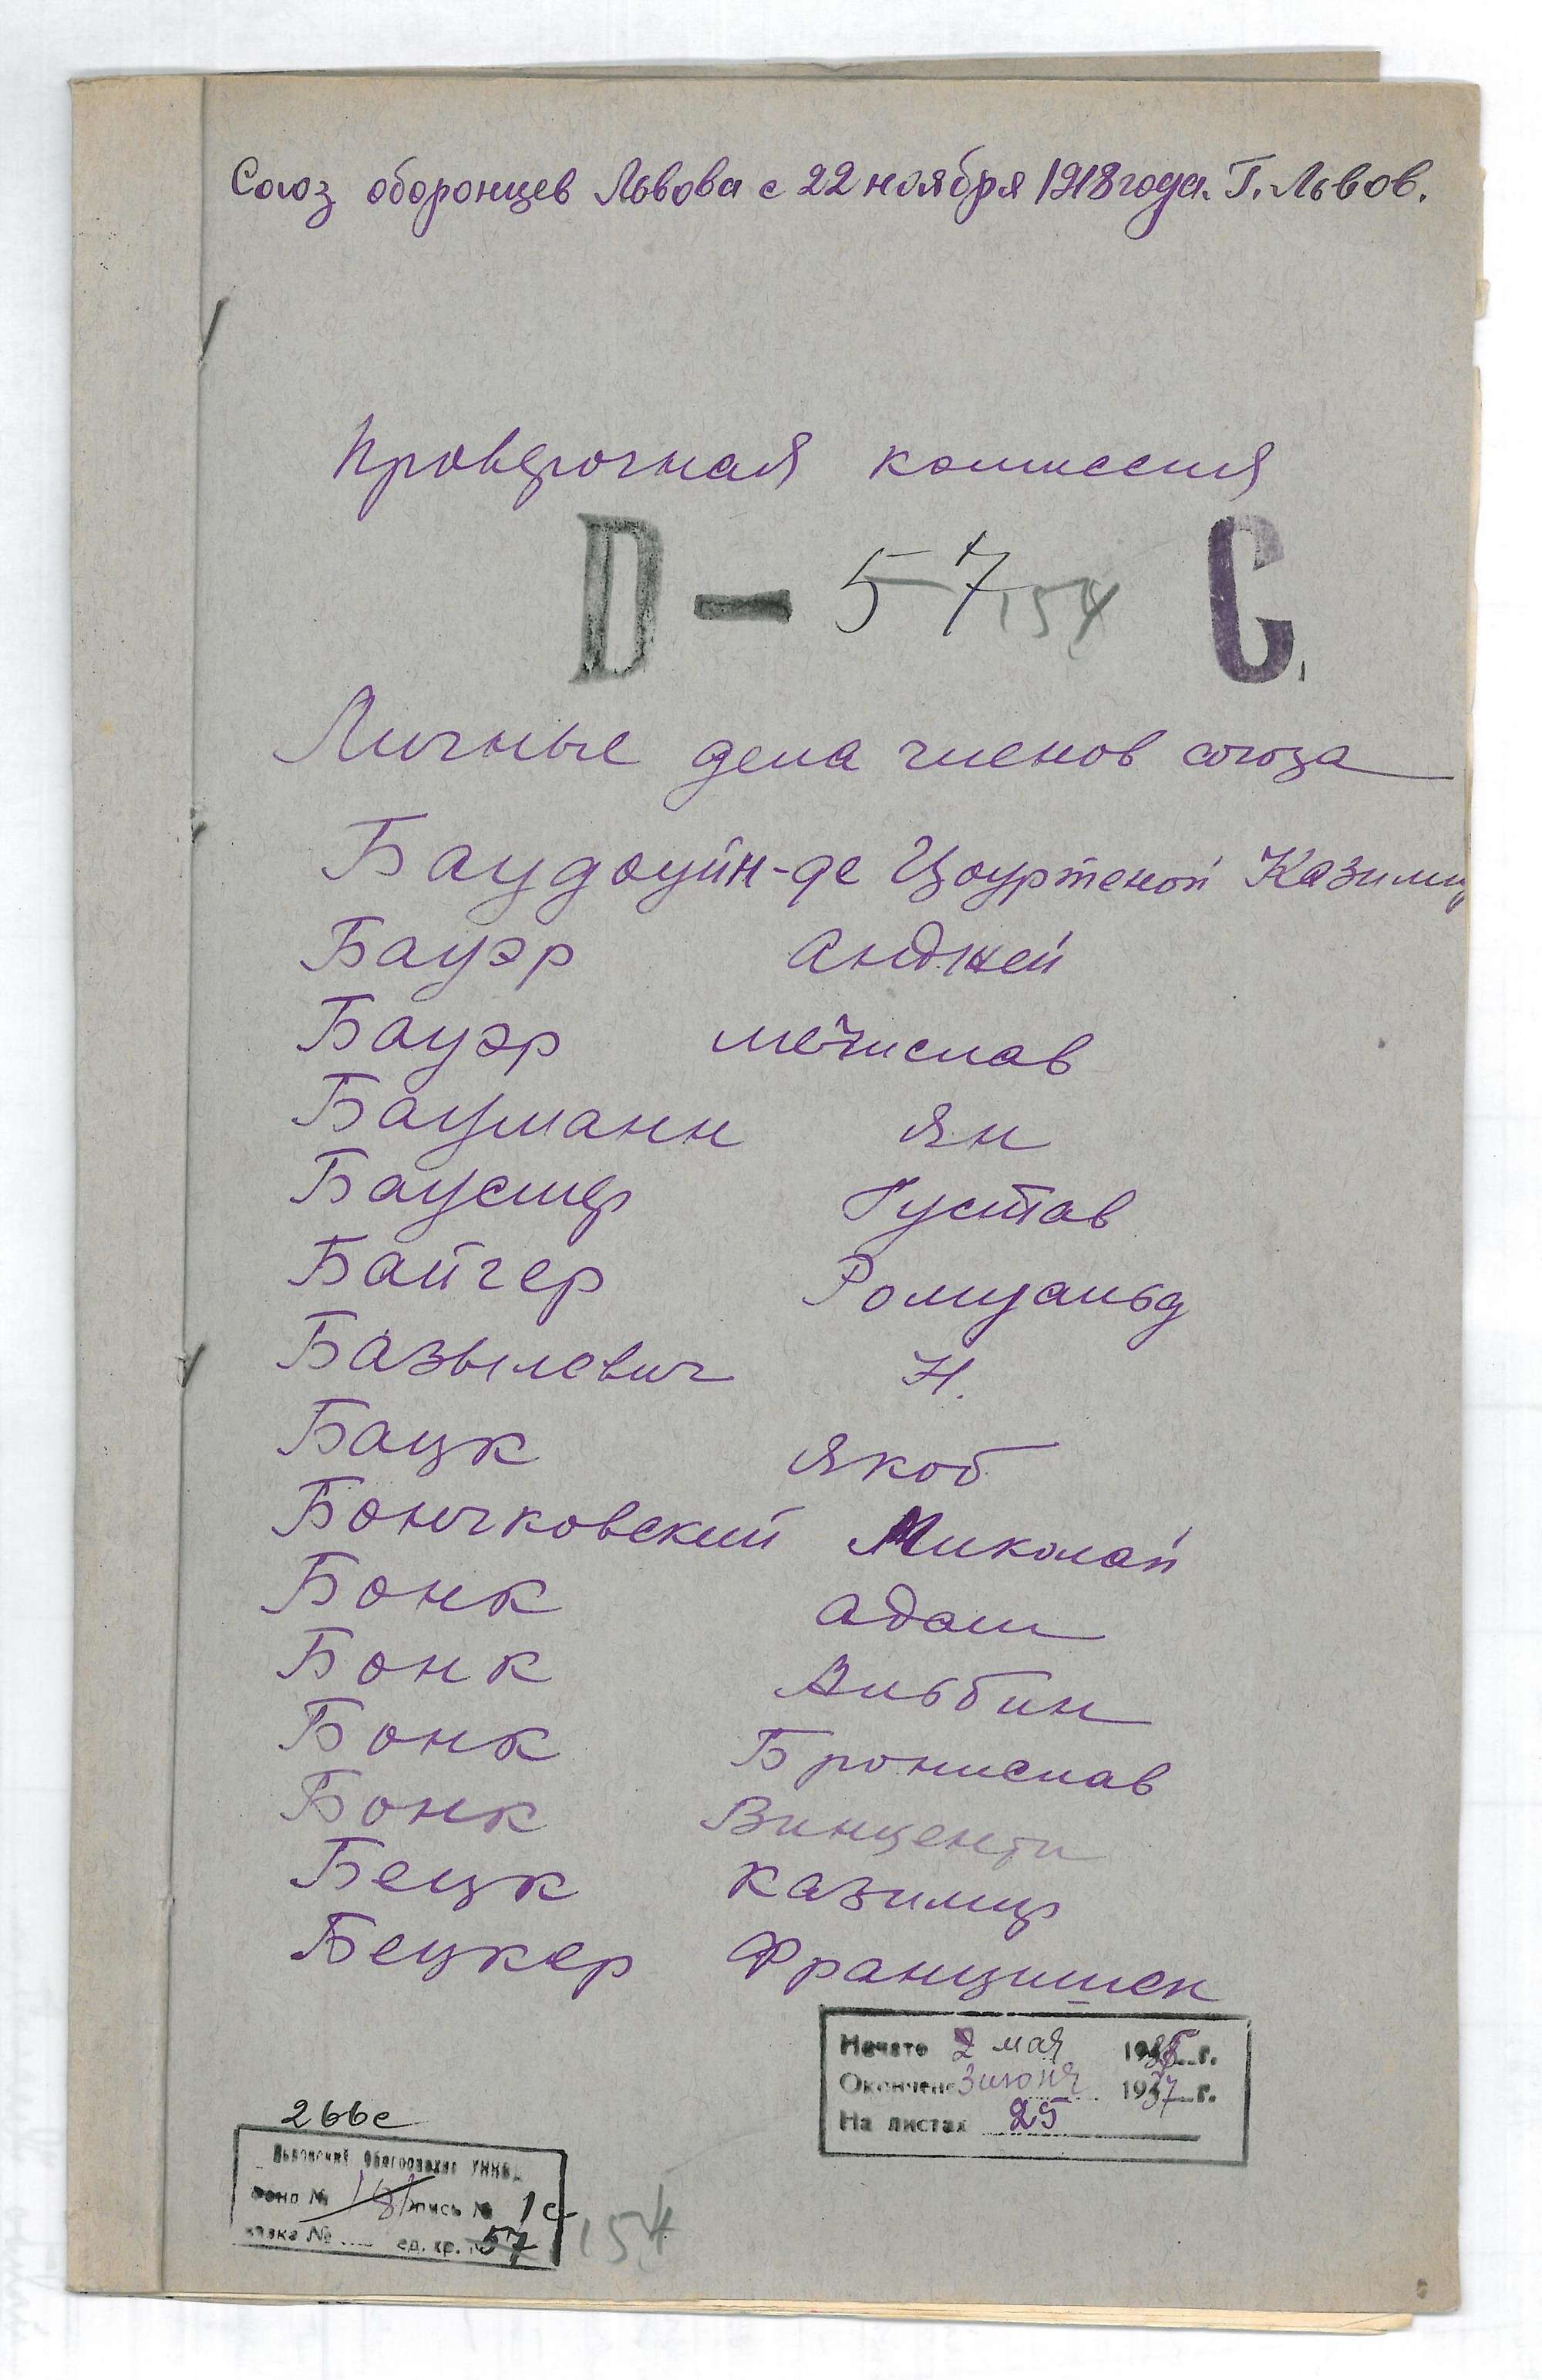 Союз оборонцев Львова с 22 ноября 1918 года. Г. Львов.
Проверочная комиссия
D — 57 154 С.
Личные дела членов союза
Баудоуйн-де Цоуртеной Казимир
Бауэр Анджей
Бауэр Мечислав
Бауманн Ян
Баусмер Густав
Байгер Ромуальд
Базылевич Н.
Бацк Якоб
Бончковский Миколай
Бонк Адам
Бонк Альбин
Бонк Бронислав
Бонк Винценти
Бецк Казимир
Бецкер Францишек
Начато 2 мая 193 г.
Окончено 3 июня 1937 г.
На листах 25
266с
Львовский Облгосархив УНКВД
Фонд № опись № 1с
связка № ед. хр. № 57 154